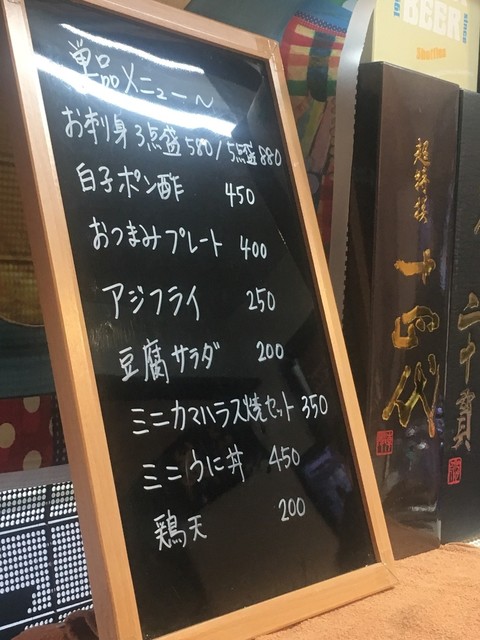 単品メニュー～
お刺身3点盛580/5点盛880
白子ポン酢 450
おつまみプレート 400
アジフライ 250
豆腐サラダ 200
ミニカマハラス焼セット 350
ミニうに丼 450
鶏天 200
BEER
超特撰
十四代